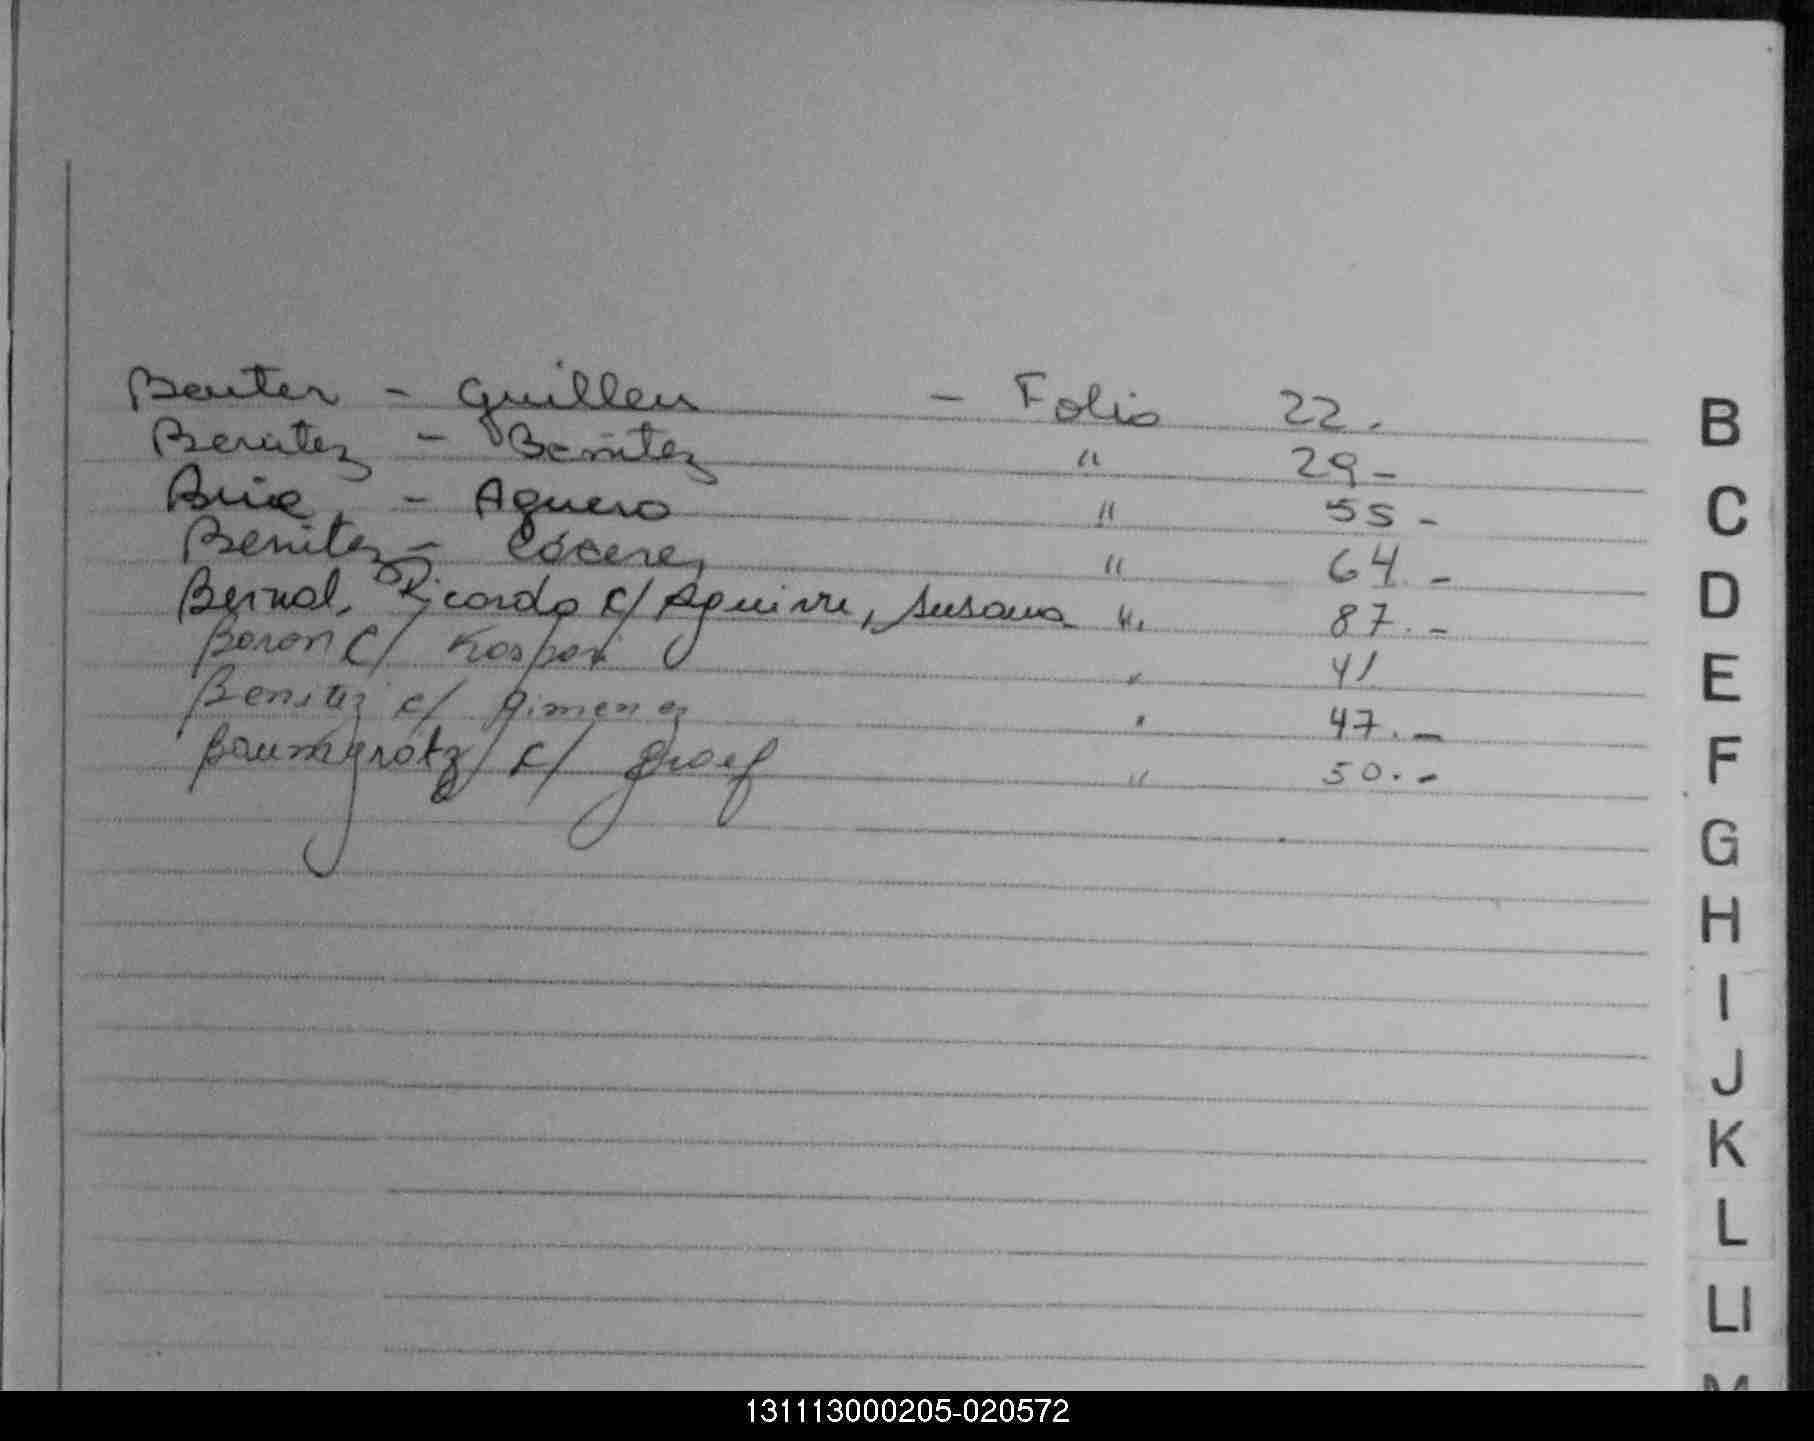 Bauter - Guillen - Folio 22.
Benitez - Benitez " 29 -
Aguero " 55 -
Benitez - Cácere, " 64 -
Bernal, Ricardo c/ Aguirre, Susana ". 87. -
Boron c/ " 41
Benitez c/ Gimenez " 47. -
Baumgratz c/ Graef " 50. -
B
C
D
E
F
G
H
I
J
K
L
Ll
M
131113000205-020572